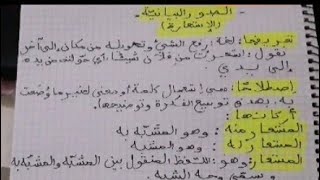 الصور البيانية
(الإستعارة)
تعريفها: لغة: رفع الشيء وتحويله من مكان إلى آخر
نقول: استعرت من فلان شيئا، أي حولته من يده
إلى يدي
إصطلاحا: هي استعمال كلمة أو معنى لغير ما وضعت
به بهدف توسيع الفكرة وتوضيحها.
أركانها:
المستعار منه: وهو المشبه به
المستعار له: وهو المشبه
المستعار: وهو: اللفظ المنقول بين المشبه والمشبه به
ويسمى وجه الشبه